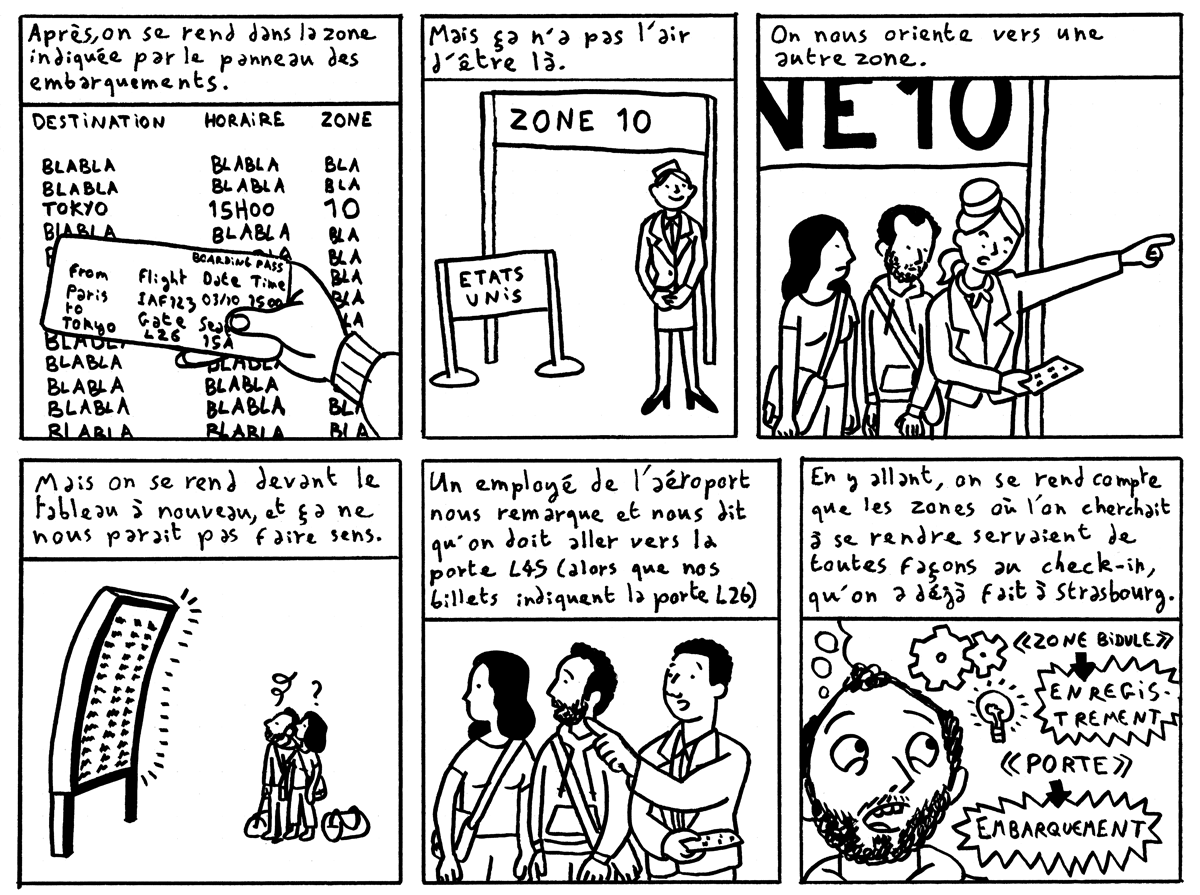 Après, on se rend dans la zone
indiquée par le panneau des
embarquements.
DESTINATION HORAIRE ZONE
BLABLA BLABLA BLA
BLABLA BLABLA BLA
TOKYO 15H00 10
BLABLA BLABLA BLA
BLA
BOARDING PASS
From Flight Date Time
Paris IAF123 03/10 1500
to Gate
Tokyo L26 15A
BLA
BLA
BLA
BLABLA BLABLA
BLABLA BLABLA
BLABLA BLABLA
BLABLA BLABLA BLA
BLABLA BLABLA BLA
Mais ça n'a pas l'air
d'être là.
ZONE 10
ETATS
UNIS
On nous oriente vers une
autre zone.
NE 10
Mais on se rend devant le
tableau à nouveau, et ça ne
nous parait pas faire sens.
?
Un employé de l'aéroport
nous remarque et nous dit
qu'on doit aller vers la
porte L45 (alors que nos
billets indiquent la porte L26)
En y allant, on se rend compte
que les zones où l'on cherchait
à se rendre servaient de
toutes façons au check-in,
qu'on a déjà fait à Strasbourg.
«ZONE BIDULE»
ENREGIS-
TREMENT
«PORTE»
EMBARQUEMENT